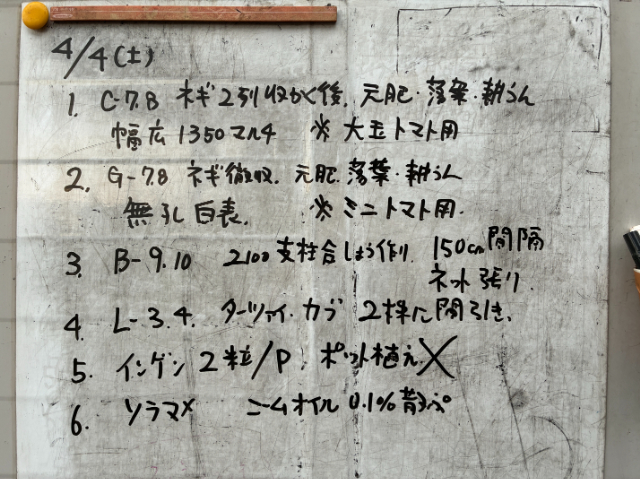 4/4(土)
1. C-7.8 ネギ2列収かく後、元肥・落葉・耕うん
幅広1350マルチ ※大玉トマト用
2. G-7.8 ネギ 収、元肥、落葉・耕うん
無孔白表、 ※ミニトマト用.
3. B-9.10 2100支柱合しょう作り 150cm間隔
ネット張り
4. L-3.4. ターツァイ・カブ 2株に間引き、
5. インゲン 2粒/P ポット植え X
6. ソラマメ ニームオイル 0.1%散ぷ